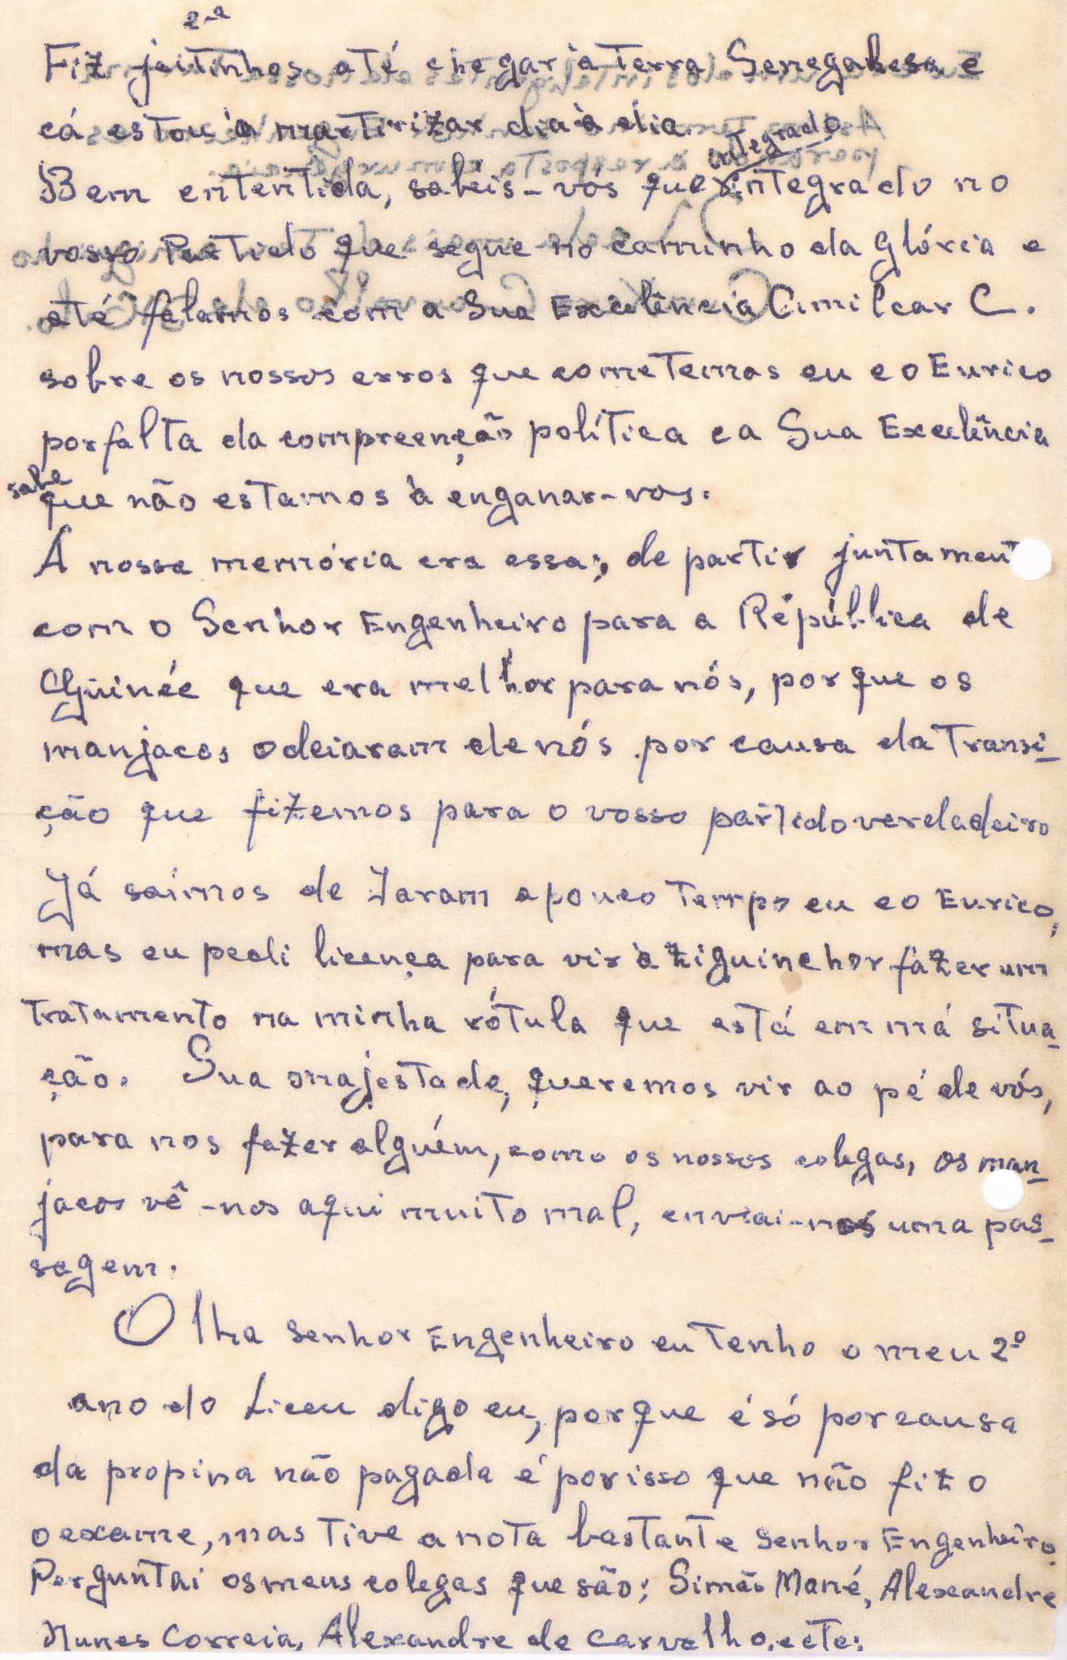 2-a
Fiz jeitinhos até chegar à Terra Senegalesa e
cá estou à martirizar dia à dia
integrado
Bem ententida, sabeis-vós que integrado no
vosso Partido que segue no caminho da Glória e
até falamos com a Sua Excelência Amilcar C.
sobre os nossos erros que cometemos eu e o Eurico
por falta da compreenção política e a Sua Excelência
sabe
que não estamos à enganar-vos.
A nossa memória era essa; de partir juntament
com o Senhor Engenheiro para a Républica de
Guinée que era melhor para nós, porque os
manjacos odeiaram de nós por causa da Transi-
ção que fizemos para o vosso partido verdadeiro
Já saímos de Jaram a pouco Tempo eu e o Eurico,
mas eu pedi licença para vir à Ziguinchor fazer um
Tratamento na minha rótula que está em má situa-
ção. Sua majestade, queremos vir ao pé de vós,
para nos fazer alguém, como os nossos colegas, os man-
jacos vê-nos aqui muito mal, enviai-nos uma pas-
sagem.
Olha Senhor Engenheiro eu Tenho o meu 2º
ano do Liceu digo eu, porque é só por causa
da propina não pagada é por isso que não fiz o
o exame, mas Tive a nota bastante Senhor Engenheiro.
Perguntai os meus colegas que são; Simão Mané, Alexandre
Nunes Correia, Alexandre de Carvalho, e etc;